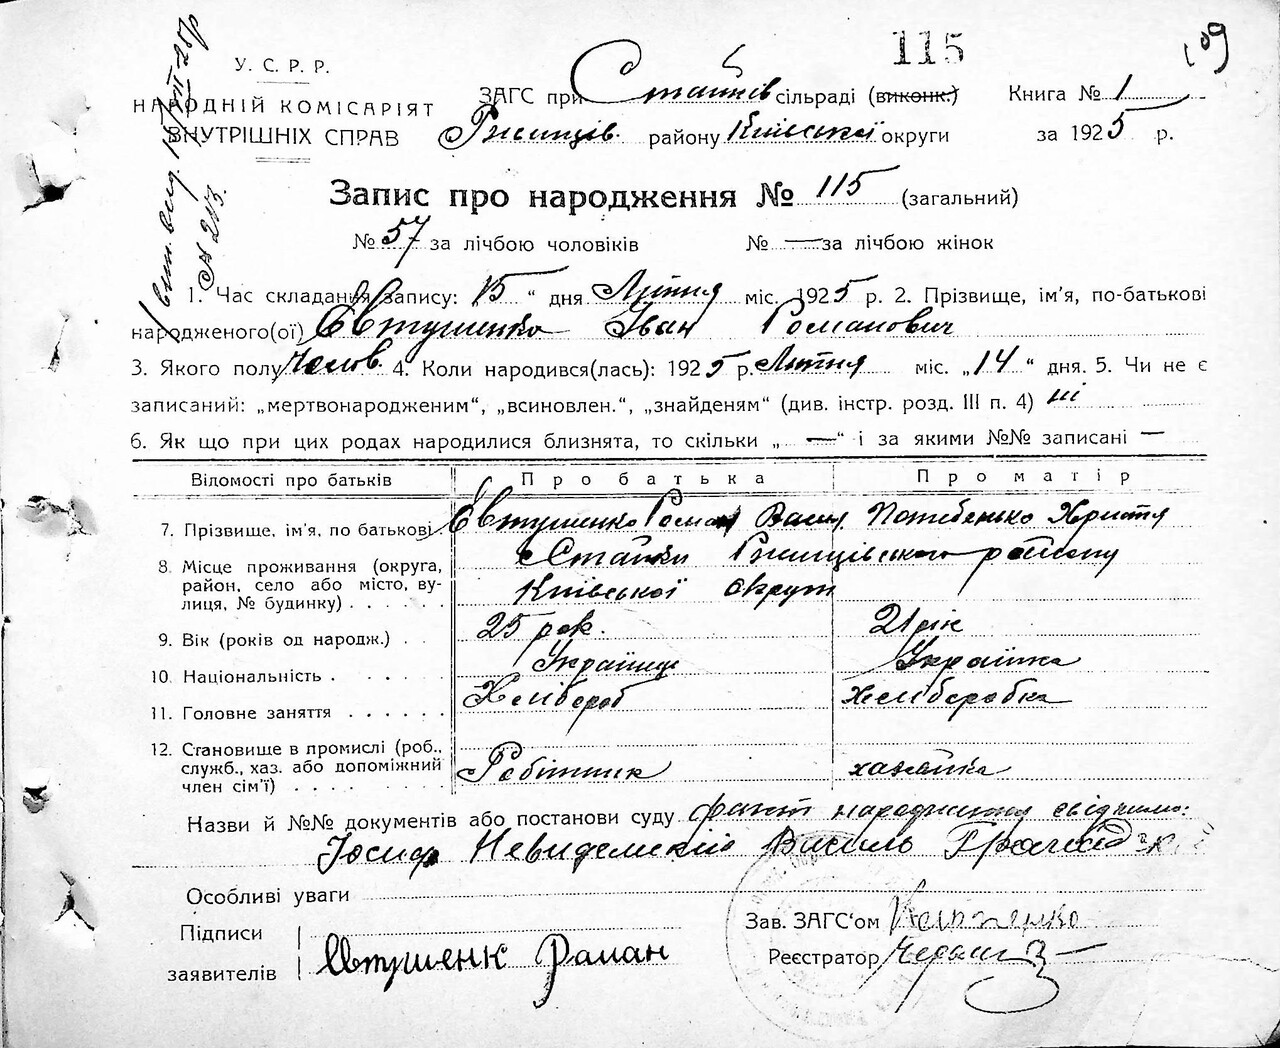 115
109
У. С. Р. Р.
НАРОДНІЙ КОМІСАРІЯТ
ВНУТРІШНІХ СПРАВ
ЗАГС при Стайків сільраді (виконк.)
Ржищів. району Київської округи
Книга № 1
за 1925 р.
Запис про народження № 115 (загальний)
№ 57 за лічбою чоловіків № — за лічбою жінок
1. Час складання запису: 15 " дня Липня міс. 1925 р. 2. Прізвище, ім'я, по-батькові
народженого(ої) Євтушенко Іван Романович
3. Якого полу Чолов. 4. Коли народився(лась): 1925 р. Липня міс. „14 " дня. 5. Чи не є
записаний: „мертвонародженим", „всиновлен.", „знайденям" (див. інстр. розд. III п. 4) ні
6. Як що при цих родах народилися близнята, то скільки „ — " і за якими №№ записані —
Відомості про батьків Про батька Про матір
7. Прізвище, ім'я, по батькові. Євтушенко Роман Васил. Потебенько Христя
8. Місце проживання (округа, Стайки Ржищівського району
район, село або місто, ву-
лиця, № будинку) . . . . . . Київської округи
9. Вік (років од народж.) . . 25 рок. 21 рік
10. Національність . . . . . Українець Українка
11. Головне заняття . . . . . . Хлібороб хліборобка
12. Становище в промислі (роб.,
служб., хаз. або допоміжний Робітник хазяйка
член сім'ї) . . . . . . . .
Назви й №№ документів або постанови суду факт народження свідчимо:
Йосип Невидомский Василь
Особливі уваги
Підписи
заявителів Євтушенк Роман
Зав. ЗАГС'ом
Реєстратор